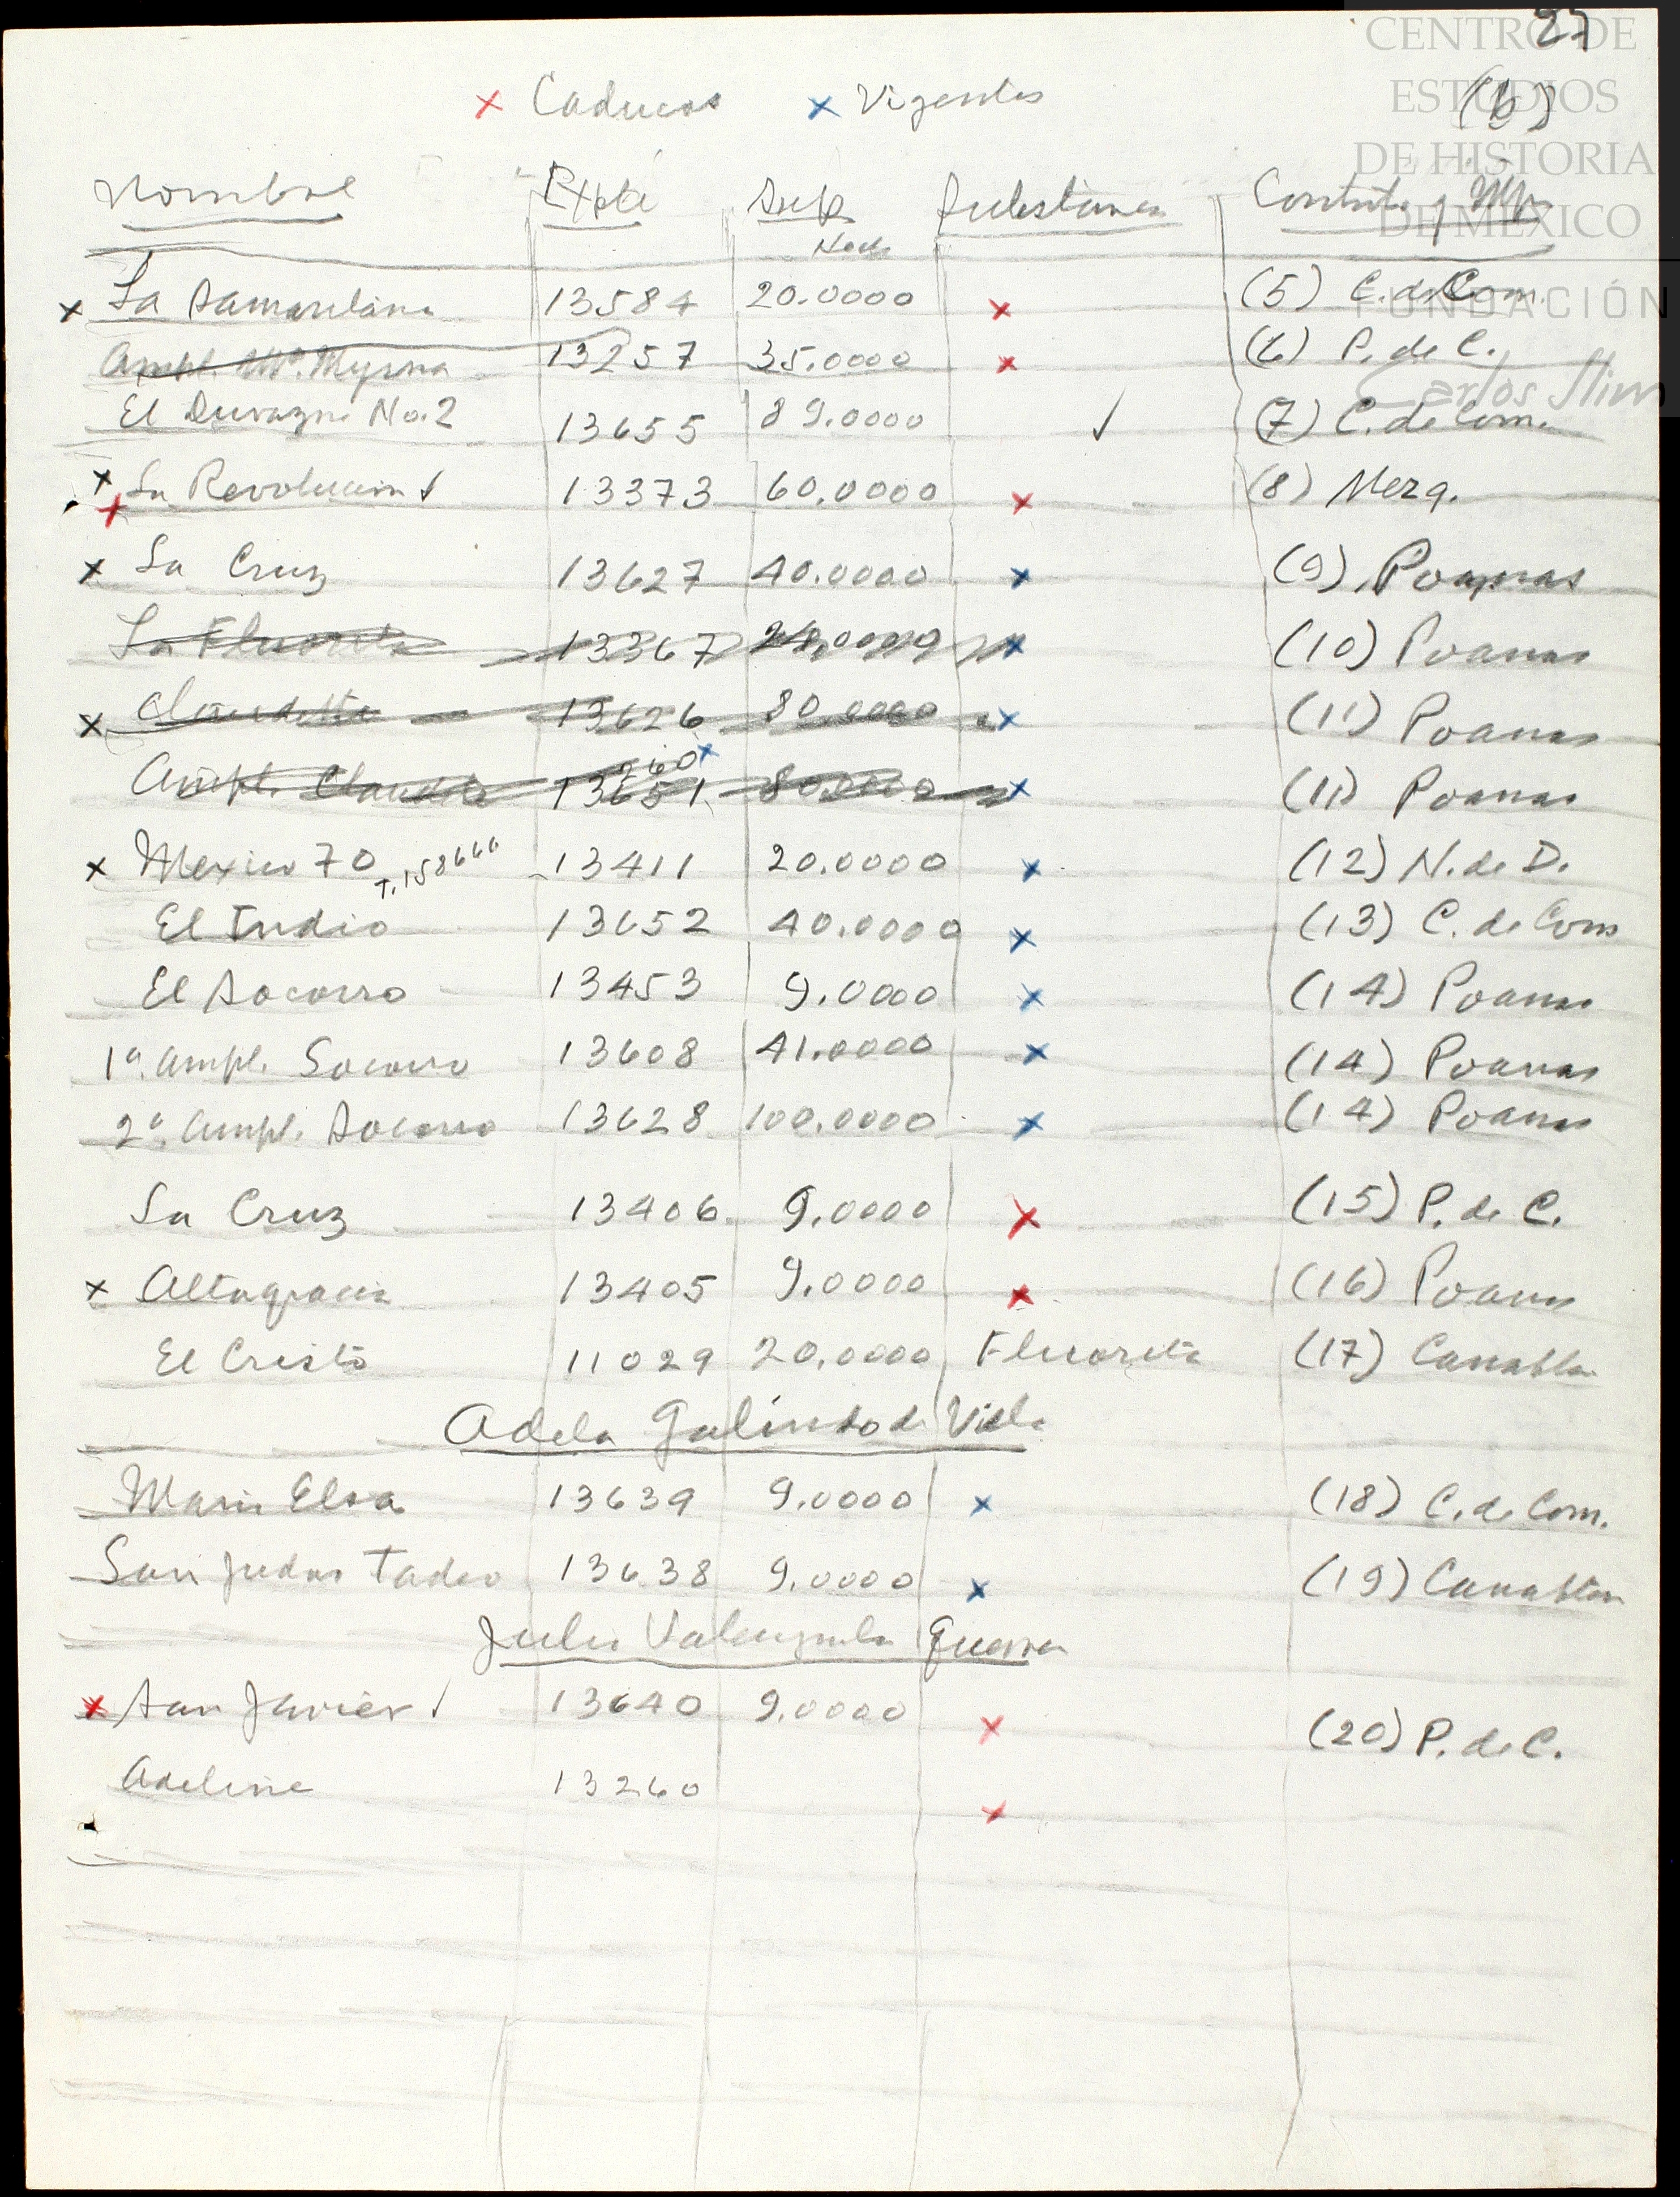 27
CENTRO DE
ESTUDIOS
DE HISTORIA
DE MÉXICO
FUNDACIÓN
Carlos Slim
(b)
x Caducos x Vigentes
Nombre Expte Sup Substancia Contrato y
Hects
x La Samaritana 13584 20.0000 x (5) C. de Com.
Ampl. Ma. Myrna 13257 35.0000 x (6) P. de C.
El Durazno No. 2 13655 89.0000 ✓ (7) C. de Com.
x x La Revolucion ✓ 13373 60.0000 x (8) Mezq.
x La Cruz 13627 40.0000 x (9) Poanas
La Fluorita 13367 24.0000 x (10) Poanas
x Claudette 13626 80.0000 x (11) Poanas
260 x
Ampl. Claudette 13651 80.0000 x (11) Poanas
x Mexico 70 T. 158666 13411 20.0000 x (12) N. de D.
El Indio 13652 40.0000 x (13) C. de Com
El Socorro 13453 9.0000 x (14) Poanas
1a. Ampl. Socorro 13608 41.0000 x (14) Poanas
2a. Ampl. Socorro 13628 100.0000 x (14) Poanas
La Cruz 13406 9.0000 x (15) P. de C.
x Altagracia 13405 9.0000 x (16) Poanas
El Cristo 11029 20.0000 Fluorita (17) Canatlan
Adela Galindo de Villa
Maria Elsa 13639 9.0000 x (18) C. de Com.
San Judas Tadeo 13638 9.0000 x (19) Canatlan
Julio Valenzuela Guerra
x San Javier ✓ 13640 9.0000 x (20) P. de C.
Adeline 13260 x